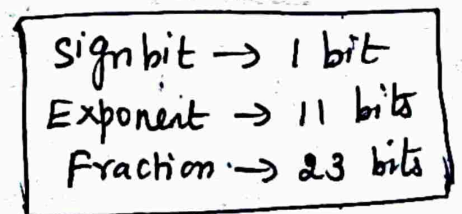 Sign bit → 1 bit
Exponent → 11 bits
Fraction → 23 bits